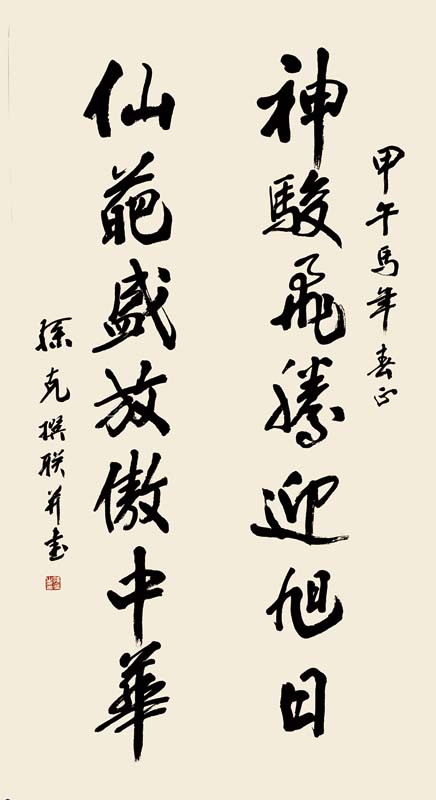 甲午馬年春正
神駿飛騰迎旭日
仙葩盛放傲中華
孫克撰联并書